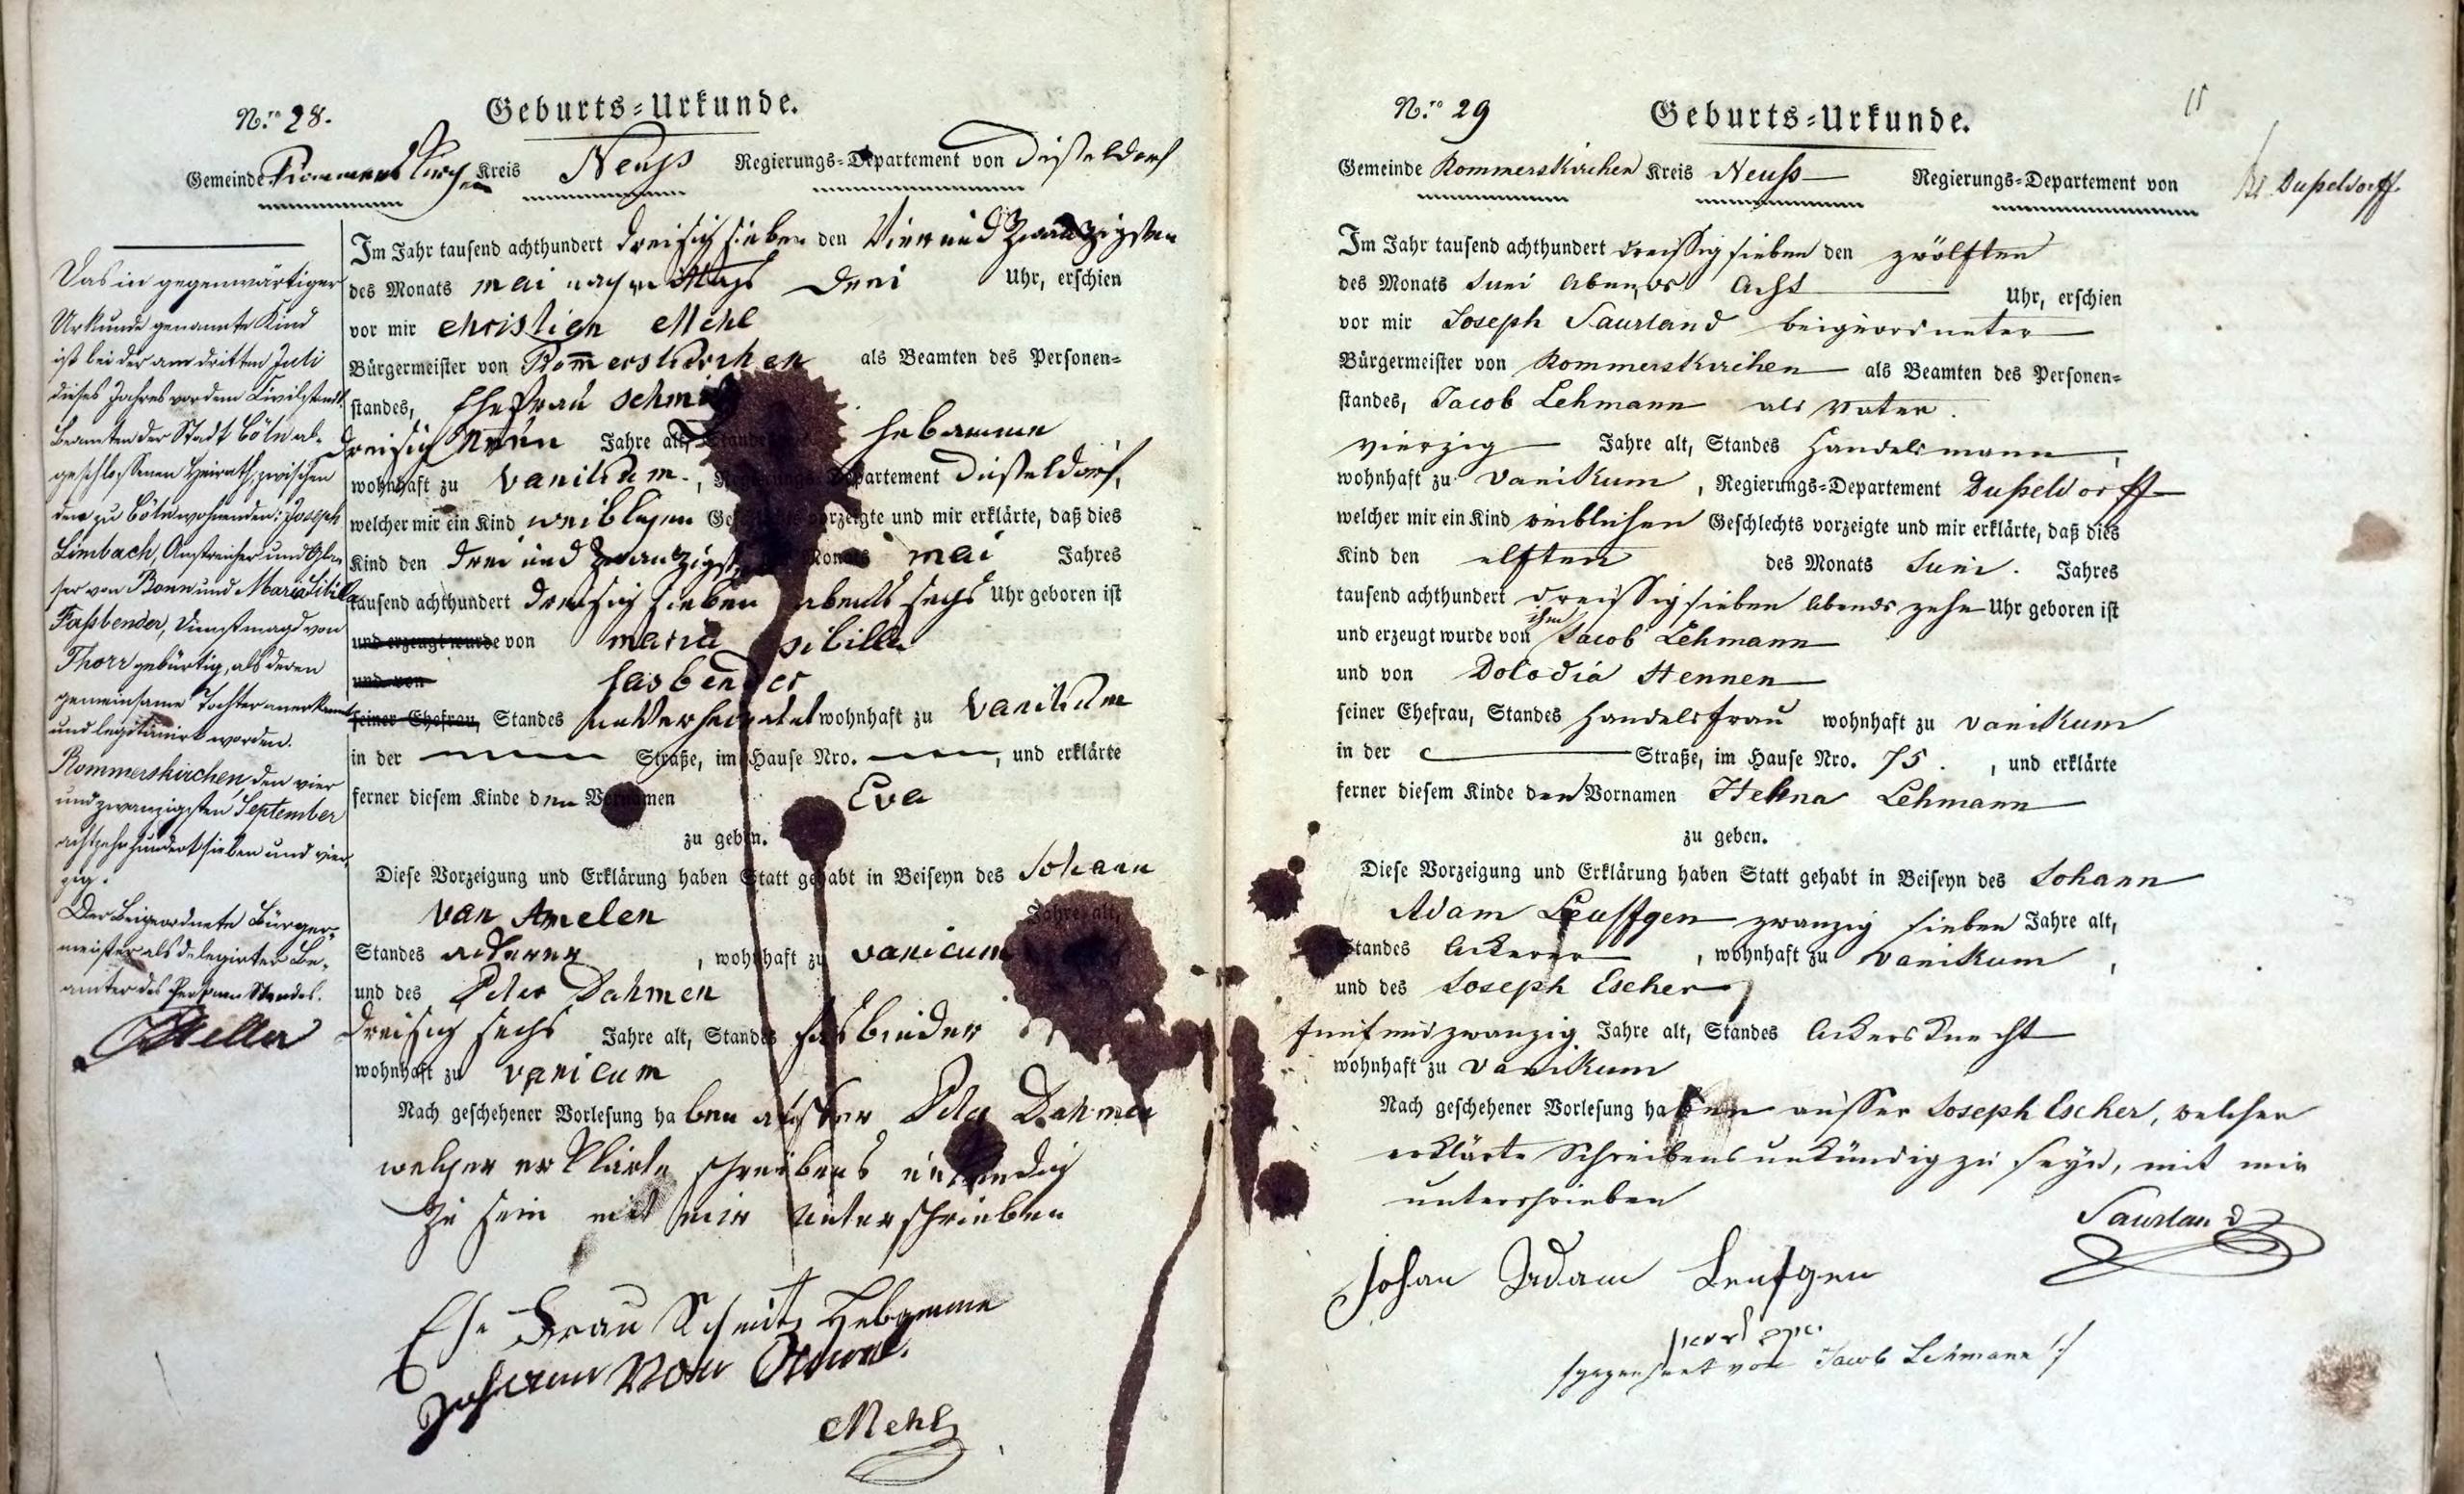 N.ro 28.
Geburts=Urkunde.
Gemeinde Rommerskirchen Kreis Neuss Regierungs=Departement von Düsseldorf
Im Jahr tausend achthundert dreisig sieben den Vier und Zwanzigsten
des Monats mai nachmittags Drei Uhr, erschien
vor mir Christian Mehl
Bürgermeister von Rom̅erskirchen als Beamten des Personen=
standes, Ehefrau Schmitz
Dreisig Neün Jahre alt, Standes hebamme
wohnhaft zu vanikum., Regierungs=Departement Düsseldorf,
welcher mir ein Kind weiblichen Geschlechts vorzeigte und mir erklärte, daß dies
Kind den drei und zwanzigsten Monats mai Jahres
tausend achthundert dreisig sieben abends sechs Uhr geboren ist
und erzeugt wurde von maria sibilla
und von fasbender
seiner Ehefrau, Standes unverheiratet wohnhaft zu vanikum
in der Straße, im Hause Nro. , und erklärte
ferner diesem Kinde den Vornamen Eva
zu geben.
Diese Vorzeigung und Erklärung haben Statt gehabt in Beiseyn des Johann
van Amelen Jahre alt,
Standes ackerer, wohnhaft zu vanicum
und des Peter Dahmen
dreisig sechs Jahre alt, Standes fasbinder
wohnhaft zu vanicum
Nach geschehener Vorlesung haben ausser Peter Dahmen
welcher erklärte schreibens unkündig
zu sein mit mir unterschrieben
Ehe Frau Schmitz Hebamme
Johann van
Mehl
Das in gegenwärtiger
Urkunde genannte Kind
ist bei der am dritten Juli
dieses Jahres vor dem Civilstands
Beamten der Stadt Cöln ab=
geschlossenen Heirath, zwischen
den zu Cöln wohnenden: Joseph
Limbach, Anstreicher und Gla=
ser von Bonn und Maria Sibilla
Faßbender, Dienstmagd von
Thorr gebürtig, als deren
gemeinsame Tochter anerkannt
und legitimirt worden.
Rommerskirchen den vier
und zwanzigsten September
achtzehnhundert sieben und vier=
zig.
Der Beigeordnete Bürger=
meister als delegirter Be=
amter des Personenstandes.
N.ro 29
Geburts=Urkunde.
Gemeinde Rommerskirchen Kreis Neuss Regierungs=Departement von Dußeldorff.
Im Jahr tausend achthundert dreissig sieben den zwölften
des Monats Juni Abends Acht Uhr, erschien
vor mir Joseph Saurland beigeordneter
Bürgermeister von Rommerskirchen als Beamten des Personen=
standes, Jacob Lehmann als Vater.
vierzig Jahre alt, Standes Handelsmann,
wohnhaft zu Vanikum, Regierungs=Departement Dußeldorff
welcher mir ein Kind weiblichen Geschlechts vorzeigte und mir erklärte, daß dies
Kind den elften des Monats Juni. Jahres
tausend achthundert dreissig sieben Abends zehn Uhr geboren ist
und erzeugt wurde von ihm Jacob Lehmann
und von Dolodia Hennen
seiner Ehefrau, Standes Handelsfrau wohnhaft zu vanikum
in der Straße, im Hause Nro. 75., und erklärte
ferner diesem Kinde den Vornamen Helena Lehmann
zu geben.
Diese Vorzeigung und Erklärung haben Statt gehabt in Beiseyn des Johann
Adam Leuffgen zwanzig sieben Jahre alt,
Standes Ackerer, wohnhaft zu vanikum,
und des Joseph Escher
fünf und zwanzig Jahre alt, Standes Ackersknecht
wohnhaft zu vanikum
Nach geschehener Vorlesung haben ausser Joseph Escher, welcher
erklärte Schreibens unkündig zu seyn, mit mir
unterschrieben
Saurland
Johan Adam Leufgen
von Jacob Lehmann